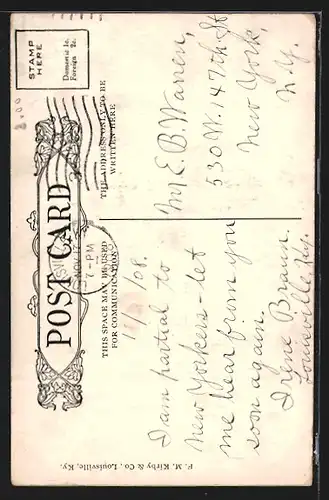 POST CARD
STAMP
HERE
Domestic 1c.
Foreign 2c.
THIS SPACE MAY BE USED
FOR COMMUNICATION
THE ADDRESS ONLY TO BE
WRITTEN HERE
7-PM
NOV
08.
I am partial to
New Yorkers - let
me hear from you
soon again.
Irene Braun.
Louisville, Ky.
E. B. Warren,
530 W. 147th St
New York,
N.Y.
F. M. Kirby & Co., Louisville, Ky.